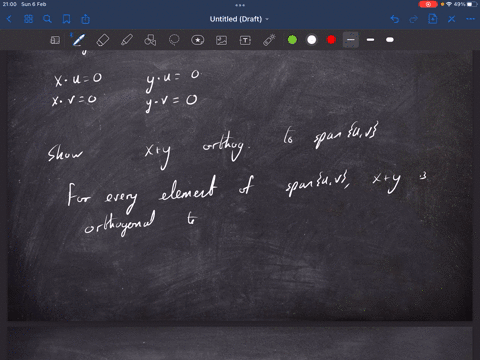 21:00 Sun 6 Feb
49%
Untitled (Draft)
x·u=0 y·u = 0
x·v=0 y·v = 0
Show x+y orthog. to span{u,v}
For every element of span{u,v}, x+y is
orthogonal to